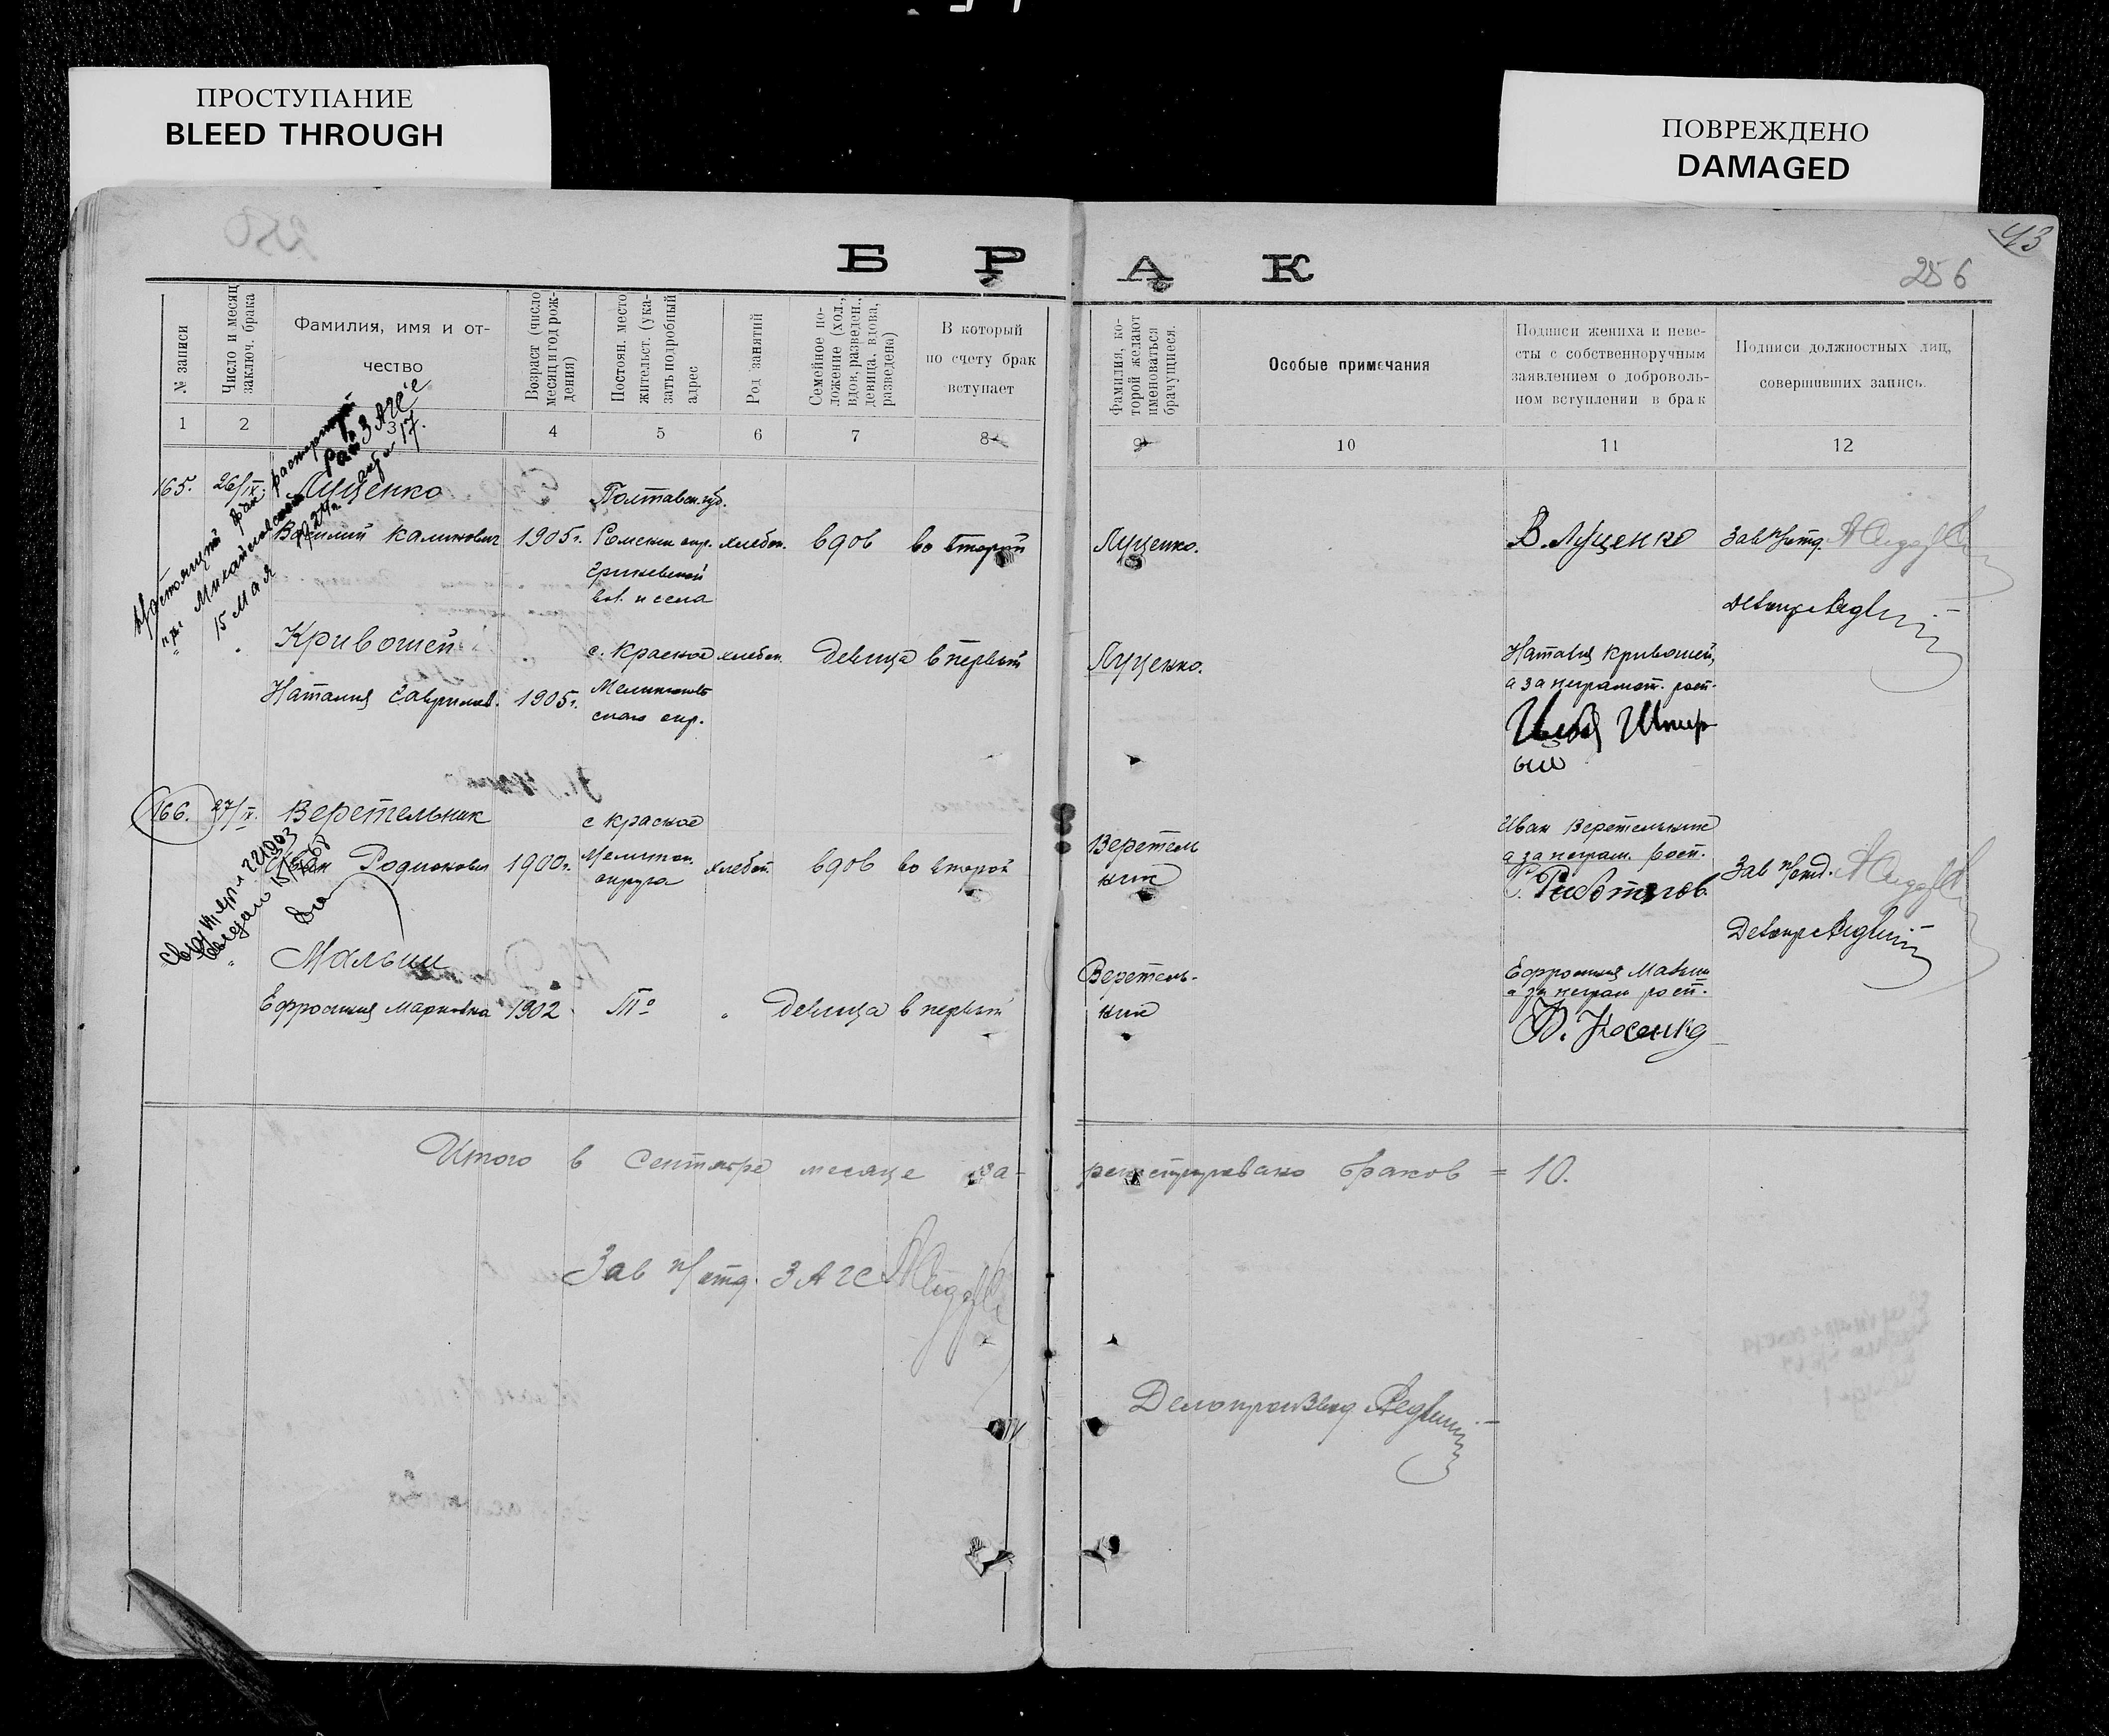 ПРОСТУПАНИЕ
BLEED THROUGH
ПОВРЕЖДЕНО
DAMAGED
43
256
Б Р А К
№ записи
Число и месяц
заключ. брака
Фамилия, имя и от-
чество
Возраст (число
месяц и год рож-
дения)
Постоян. место
жительст. (ука-
зать подробный
адрес
Род занятий
Семейное по-
ложение (хол.,
вдов, разведен.,
девица, вдова,
разведена)
В который
по счету брак
вступает
Фамилия, ко-
торой желают
именоваться
брачущиеся.
Особые примечания
Подписи жениха и неве-
сты с собственноручным
заявлением о доброволь-
ном вступлении в брак
Подписи должностных лиц,
совершивших запись.
1 2 3 4 5 6 7 8 9 10 11 12
Настоящий брак расторгнут
при Михайловском рай ЗАГСе
15 мая
165. 26/IX. Лущенко
Василий Калинович 1905г.
Полтавск. губ.
Роменск. окр.
вол. и села
хлебоп. вдов во второй
Лущенко.
В. Лущенко
Зав п/отд.
Кривошей
Наталия Гаврилов. 1905г.
с. Красное
Мелитополь
ского окр.
хлебоп. девица в первый
Лущенко.
Наталия Кривошей,
а за неграмот. расп.
166. 27/IX. Веретельник
Иван Родионович 1900г.
с Красное
Мелитоп.
округа
хлебоп. вдов во второй
Веретель
ник
Иван Веретельник
а за неграм. расп.
Зав п/отд.
Мальши
Ефросиния Марковна 1902 То " девица в первый
Веретель-
ник
Ефросиния
а за неграм расп.
Носенко
Итого в Сентябре месяце за-
регистрировано браков = 10.
Зав п/отд. ЗАГС
Делопроизвод